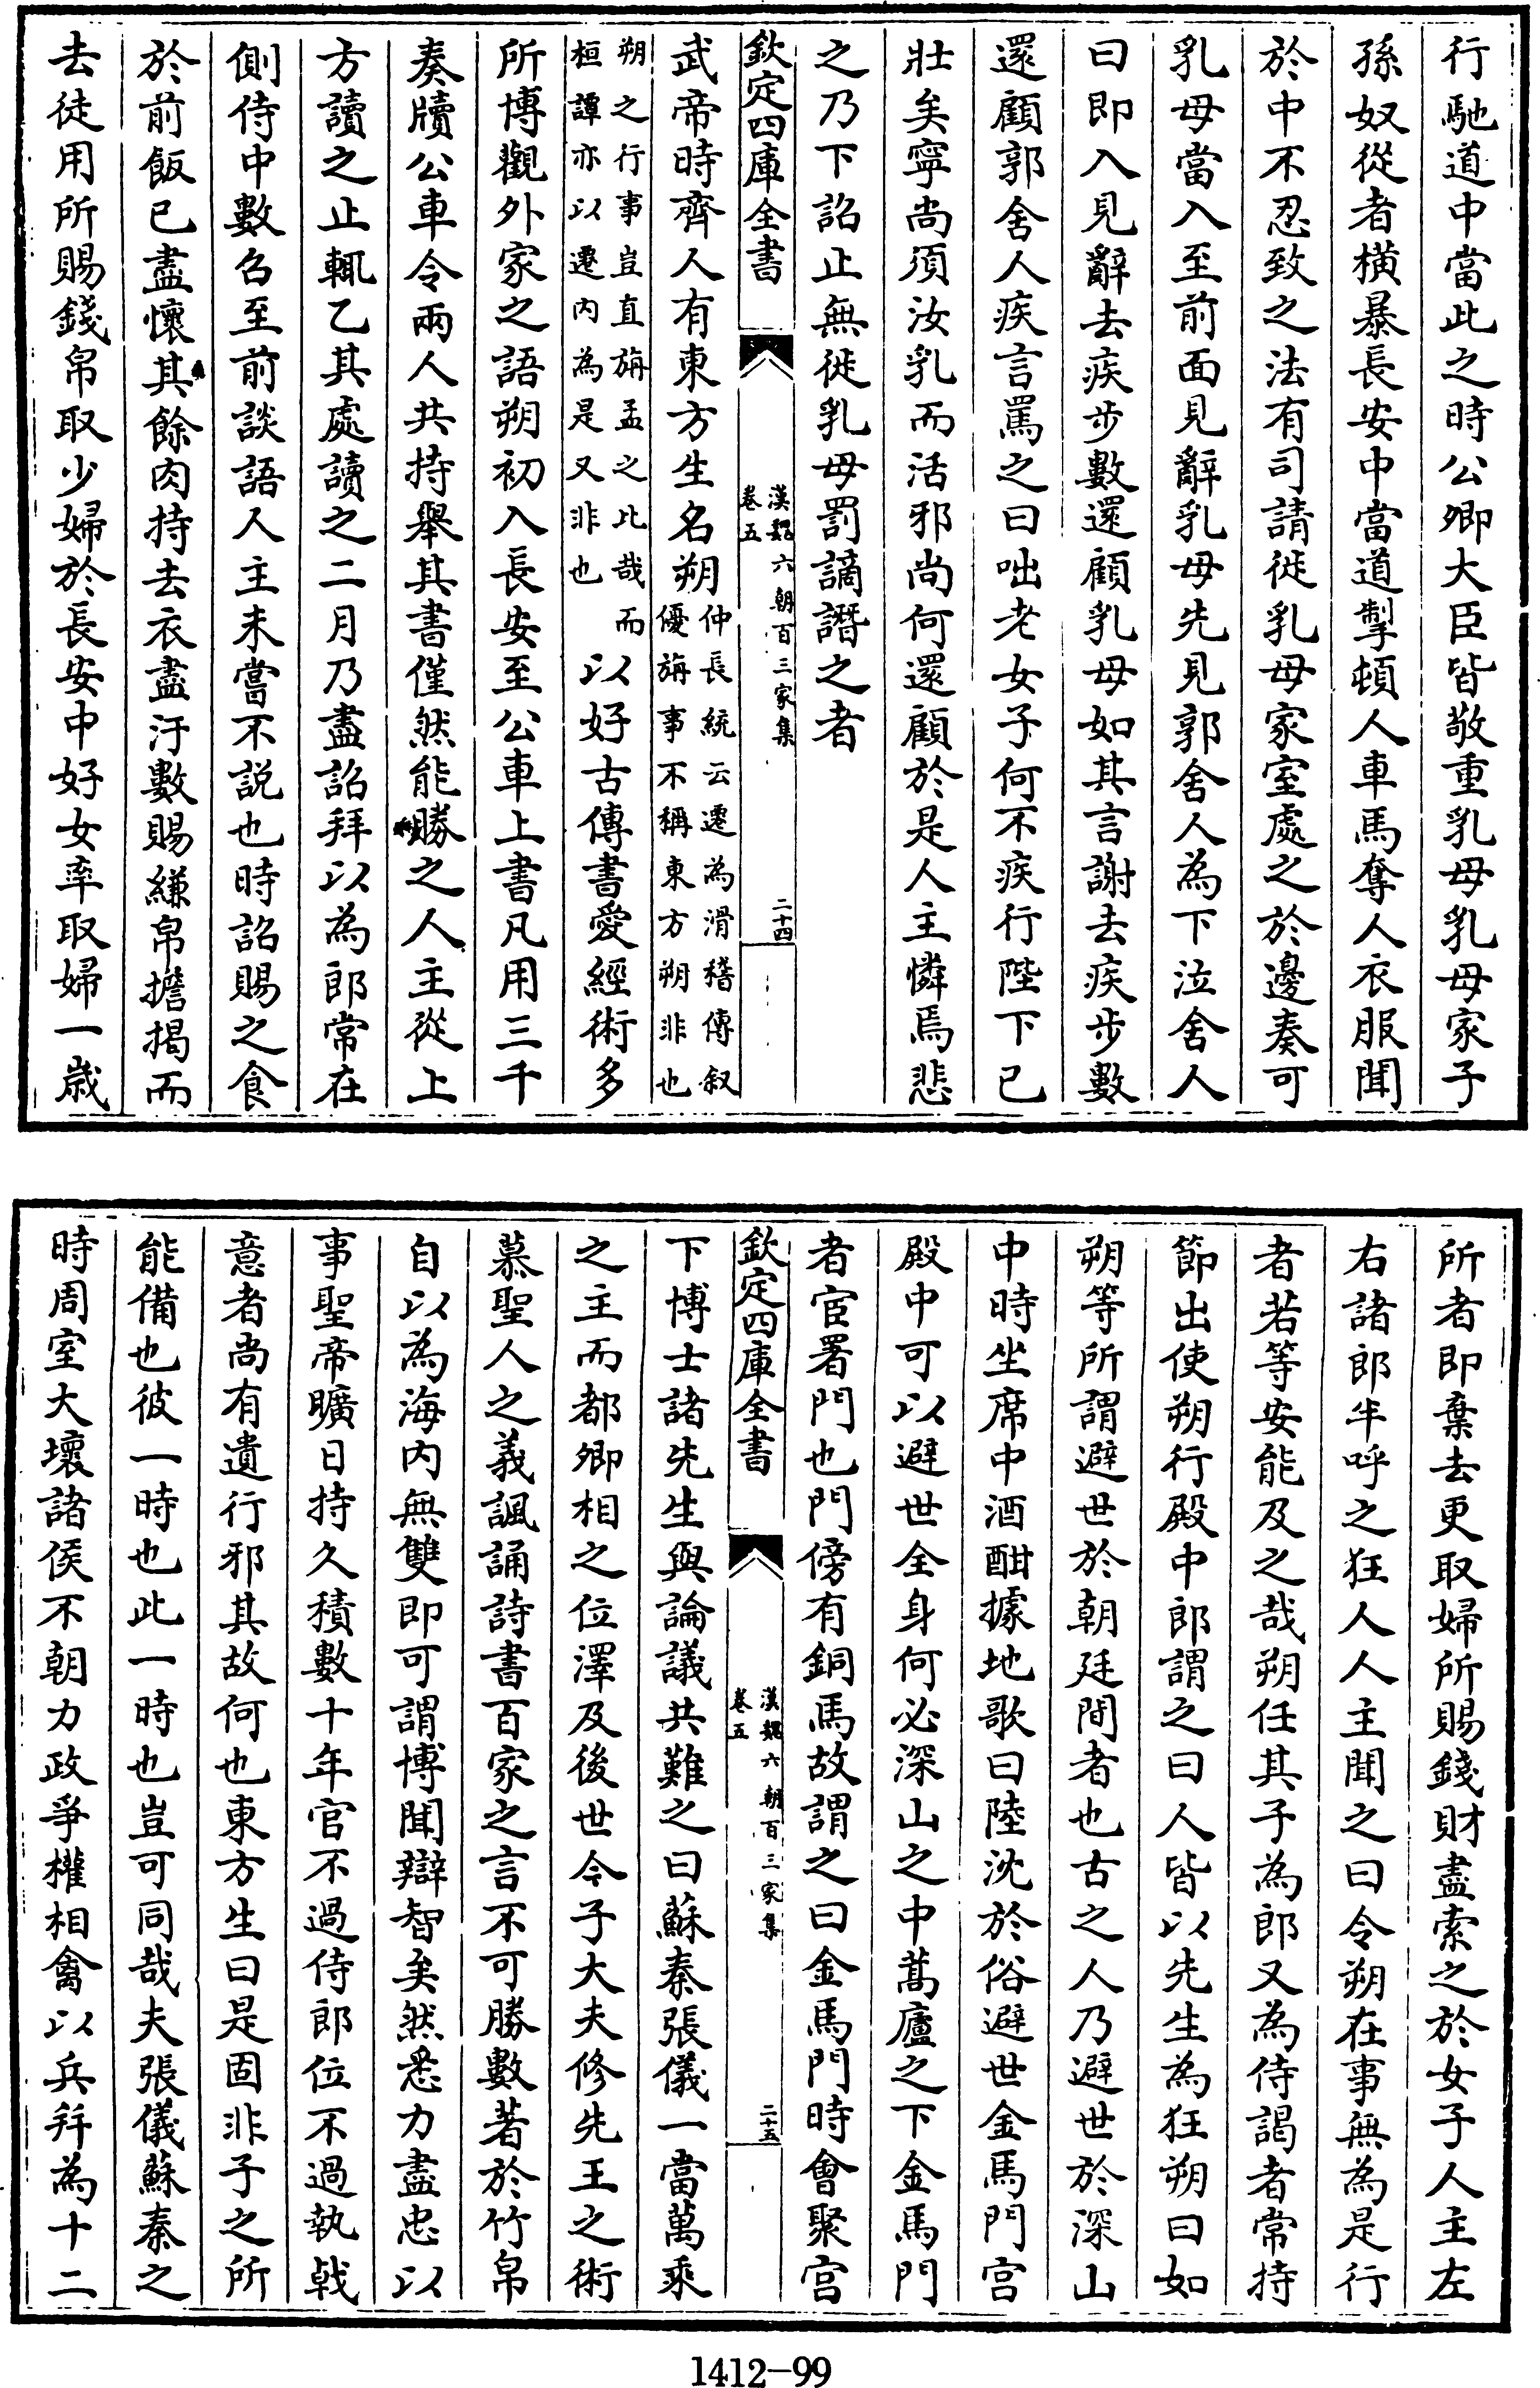 行馳道中當此之時公卿大臣皆敬重乳母乳母家子
孫奴從者橫暴長安中當道掣頓人車馬奪人衣服聞
於中不忍致之法有司請徙乳母家室處之於邊奏可
乳母當入至前面見辭乳母先見郭舍人為下泣舍人
曰即入見辭去疾步數還顧乳母如其言謝去疾步數
還顧郭舍人疾言罵之曰咄老女子何不疾行陛下已
壯矣寧尚須汝乳而活邪尚何還顧於是人主憐焉悲
之乃下詔止無徙乳母罰謫譖之者
欽定四庫全書
漢魏六朝百三家集
卷五
二十四
武帝時齊人有東方生名朔仲長統云遷為滑稽傳叙
優旃事不稱東方朔非也
朔之行事豈直旃孟之比哉而
桓譚亦以遷內為是又非也
以好古傳書愛經術多
所博觀外家之語朔初入長安至公車上書凡用三千
奏牘公車令兩人共持舉其書僅然能勝之人主從上
方讀之止輒乙其處讀之二月乃盡詔拜以為郎常在
側侍中數召至前談語人主未嘗不說也時詔賜之食
於前飯已盡懷其餘肉持去衣盡汙數賜縑帛擔揭而
去徒用所賜錢帛取少婦於長安中好女率取婦一歲
所者即棄去更取婦所賜錢財盡索之於女子人主左
右諸郎半呼之狂人人主聞之曰令朔在事無為是行
者若等安能及之哉朔任其子為郎又為侍謁者常持
節出使朔行殿中郎謂之曰人皆以先生為狂朔曰如
朔等所謂避世於朝廷間者也古之人乃避世於深山
中時坐席中酒酣據地歌曰陸沈於俗避世金馬門宮
殿中可以避世全身何必深山之中蒿廬之下金馬門
者宦署門也門傍有銅馬故謂之曰金馬門時會聚宮
欽定四庫全書
漢魏六朝百三家集
卷五
二十五
下博士諸先生與論議共難之曰蘇秦張儀一當萬乘
之主而都卿相之位澤及後世今子大夫修先王之術
慕聖人之義諷誦詩書百家之言不可勝數著於竹帛
自以為海內無雙即可謂博聞辯智矣然悉力盡忠以
事聖帝曠日持久積數十年官不過侍郎位不過執戟
意者尚有遺行邪其故何也東方生曰是固非子之所
能備也彼一時也此一時也豈可同哉夫張儀蘇秦之
時周室大壞諸侯不朝力政爭權相禽以兵并為十二
1412-99